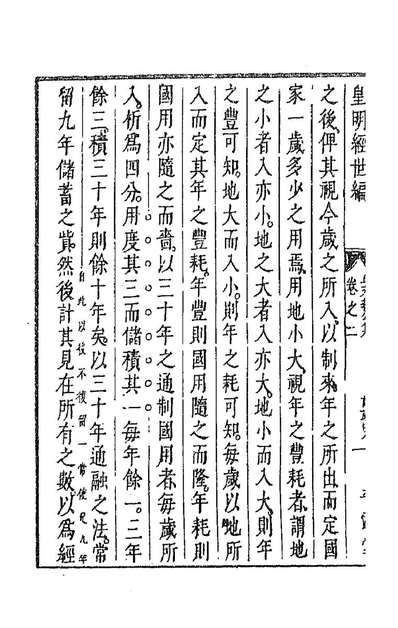 皇明經世編　卷之二
之後俾其視今歲之所入以制來年之所出而定國
家一歲多少之用焉用地小大視年之豐耗者謂地
之小者入亦小地之大者入亦大地小而入大則年
之豐可知地大而入小則年之耗可知每歲以地所
入而定其年之豐耗年豐則國用隨之而隆年耗則
國用亦隨之而嗇以三十年之通制國用者每歲所
入析爲四分用度其三而儲積其一每年餘一三年
餘三積三十年則餘十年矣以三十年通融之法常
留九年儲蓄之貲自此以後不復留一當使足九年然後計其見在所有之數以爲經